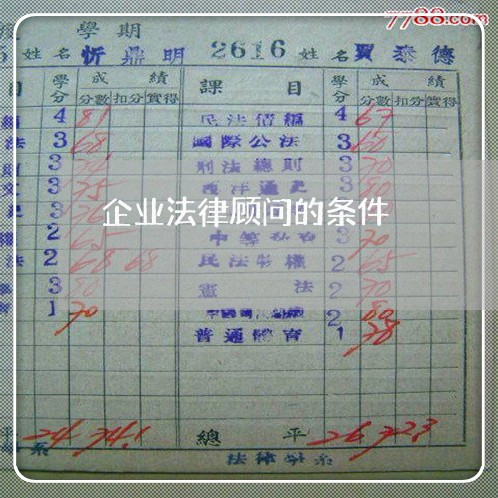 7788.com
學期
姓名 忻鼎明 2616 姓名 賈泰德
目 學分 成績 課目 學分 成績
分數 扣分 實得 分數 扣分 實得
4 81 民法債編 4 67
法 3 68 國際公法 3 60
3 刑法總則 3 70
3 75 西洋通史 3 80
企业法律顾问的条件
2 65 3 70
法 2 68 68 民法物權 2 65
3 80 憲法 2 70
1 70 2 80
普通體育 1 78
平 24 74.1 總平 26 72.3
系 法律學系